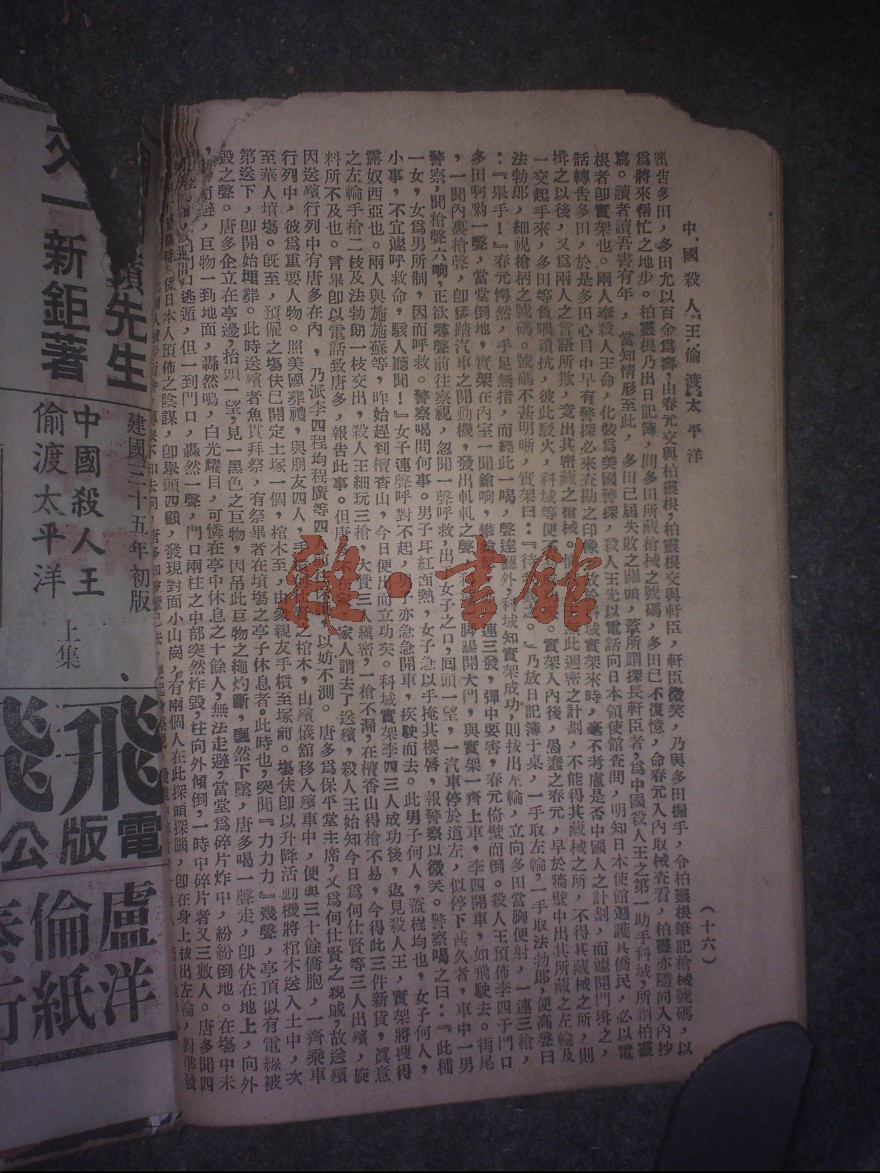 中國殺人王偷渡太平洋
(十六)
密告多田，多田允以百金為壽，由春元交與柏靈根，柏靈根交與軒臣，軒臣微笑，乃與多田握手，令柏靈根筆記槍械號碼，以
為將來帮忙之地步。柏靈根乃出日記簿，問多田所藏槍械之號碼，多田已不復憶，命春元入內取械查看，柏靈亦隨同入內抄
寫。讀者讀吾書有年，當知情形至此，多田已屆失敗之關頭，蓋所謂探長軒臣者，為中國殺人王之第一助手科域，所謂柏靈
根者卽實架也。兩人奉殺人王命，化裝為美國警探，殺人王先以電話向日本領使館查問，明知日本使館迴護其僑民，必以電
話轉告多田，於是多田心目中早有警探必來查勘之印像，故於科域實架來時，毫不考慮是否中國人之計劃，而遽開門揖之，
揖之以後，又為兩人之言語所欺，竟出其密藏之槍械。
此週密之計劃，不能得其藏械之所，不得其藏械之所，則
一交起手來，多田等負嵎頑抗，彼此駁火，科域等便不
實架入內後，愚蠢之春元，早於牆壁中出其所藏之左輪及
法勃郎，細視槍柄之號碼。號碼不甚明晰，實架曰：『待
之。』乃放日記簿于桌，一手取左輪，一手取法勃郎，便高聲曰
：『舉手！』春元愕然，手足無措，而經此一喝，聲達廳外，科域知實架成功，則拔出左輪，立向多田當胸便射，一連三槍，
多田啊喲一聲，當堂倒地，實架在內室一聞鎗响，
連三發，彈中要害，春元倚壁而倒。殺人王預佈李四于門口
，一聞內裏槍聲，卽猛踏汽車之開動機，發出軋軋之聲
脚踢開大門，與實架一齊上車，李四開車，如飛駛去。街尾
警察，聞槍聲六响，正欲尋聲前往察視，忽聞一聲呼救，出於女子之口，囘頭一望，一汽車停於道左，似停下甚久者，車中一男
一女，女為男所制，因而呼救。警察喝問何事。男子耳紅面熱，女子急以手掩其櫻唇，報警察以微笑。警察喝之曰：『此種
小事，不宜遽呼救命，駭人聽聞！』女子連聲呼對不起，男子亦急急開車，疾駛而去。此男子何人，蓋程均也，女子何人，
露奴西亞也。兩人與施施蘇等，昨始趕到檀香山，今日便出而立功矣。科域實架李四三人成功後，返見殺人王，實架將搜得
之左輪手槍二枝及法勃朗一枝交出，殺人王細玩三槍，大贊三人縝密，一槍不漏，在檀香山得槍不易，今得此三件新貨，眞意
料所不及也。言畢卽以電話致唐多，報告此事。但唐
家人謂去了送殯，殺人王始知今日為何仕賢等三人出殯，旋
因送殯行列中有唐多在內，乃派李四程均程廣等四
，以妨不測。唐多為保平堂主席，又為何仕賢之親戚，故送殯
行列中，彼為重要人物。照美國葬禮，與朋友四人，手
之棺木，由殯儀館移入殯車中，便與三十餘僑胞，一齊乘車
至華人墳塲。旣至，預僱之塲伕已開定土塚一個，棺木至，由衆親友手槓至塚前。塲伕卽以升降活動機將棺木送入土中，次
第送下，卽開始埋葬。此時送殯者魚貫拜祭，有祭畢者在墳塲之亭子休息者。此時也，突聞『力力力』幾聲，亭頂似有電線被
毀之聲。唐多企立在亭邊，抬頭一望，見一黑色之巨物，因吊此巨物之繩灼斷，飄然下墜，唐多喝一聲走，卽伏在地上，向外
避，巨物一到地面，轟然一鳴，白光耀目，可憐在亭中休息之十餘人，無法走避，當堂為碎片炸中，紛紛倒地。在塲中未
逃遁，但一到門口，轟然一聲，門口兩柱之中部突然炸毀，柱向外傾倒，一時中碎片者又三數人。唐多聞四
係日本人預佈之陰謀，卽舉頭四顧，發現對面小山崗，有兩個人在此探頭探腦，卽在身上拔出左輪，
先生
新鉅著
建國三十五年初版
中國殺人王
偷渡太平洋
上集
飛
電版公
盧
倫
洋紙
行
雅·書館